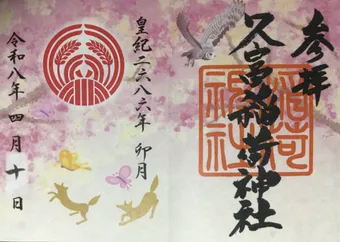 参拝
久富稲荷神社
皇紀二六八六年 卯月
令和八年 四月 十日